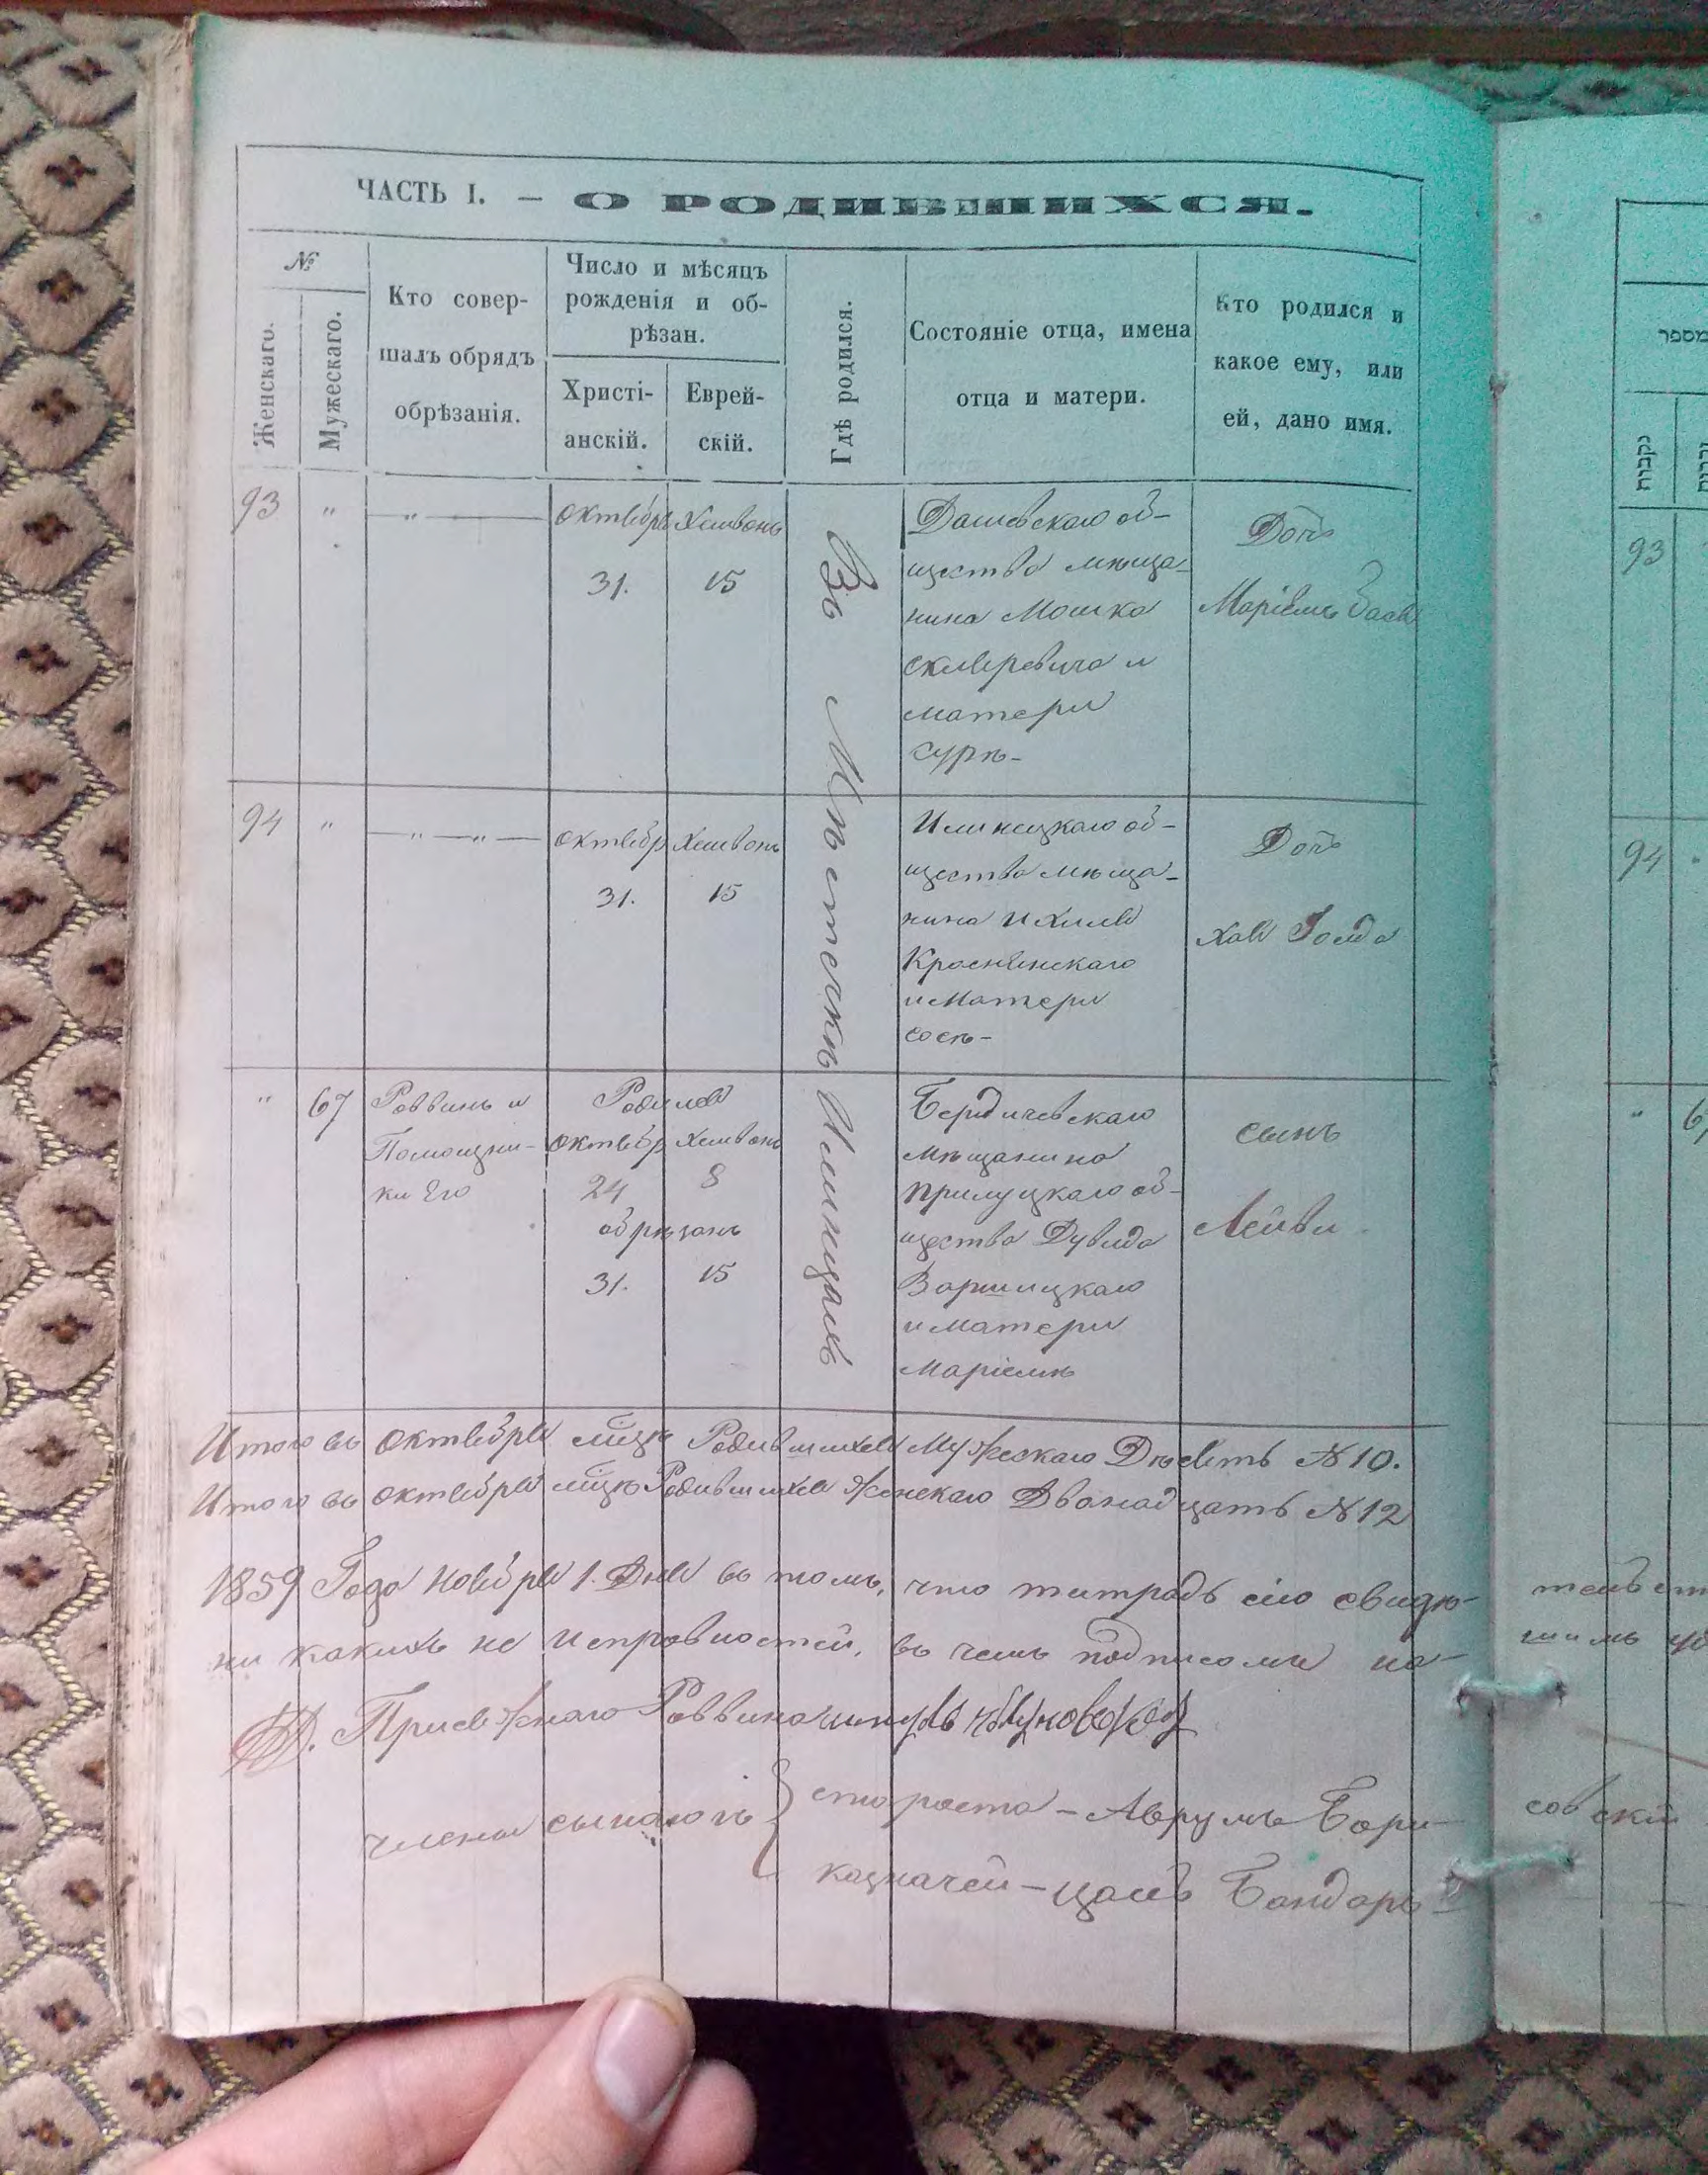 ЧАСТЬ I. — О РОДИВШИХСЯ.
№
Женскаго.
Мужескаго.
Кто совер-
шалъ обрядъ
обрѣзанія.
Число и мѣсяцъ
рожденія и об-
рѣзан.
Христі-
анскій.
Еврей-
скій.
Гдѣ родился.
Состояніе отца, имена
отца и матери.
Кто родился и
какое ему, или
ей, дано имя.
93 " — " —
Октября
31.
Хешвонъ
15
Въ Мѣстечкѣ Илинцахъ
Дашевскаго об-
щества мѣща-
нина Мошка
и
матери
Суры-
Дочь
Маріемъ Бася
94 " — " — " —
Октябр
31.
Хешвонъ
15
Илинецкаго об-
щества мѣща-
нина Ихиля
Краснянскаго
и матери
Соси-
Дочь
Хая Голда
" 67
Раввинъ и
Помощни-
ки Его
Родился
Октябр Хешвонъ
24 8
обрѣзанъ
31. 15
Бердичевскаго
мѣщанина
Прилуцкаго об-
щества Дувида
и матери
Маріемы
Сынъ
Лейви
Итого въ Октябрѣ мѣцѣ Родившихся Мужескаго Десять N 10.
Итого въ Октябрѣ мѣцѣ Родившихся Женскаго Двонадцать N 12
1859 Года Ноября 1. Дня въ томъ, что титрадь сію свидѣ-
ни какихъ не исправностей, въ чемъ подписомъ на-
Присяжнаго Раввина
члены
староста - Аврумъ Бори-
казначей - Бондарь
מספר
נקבות
93
94
" 6
совскій